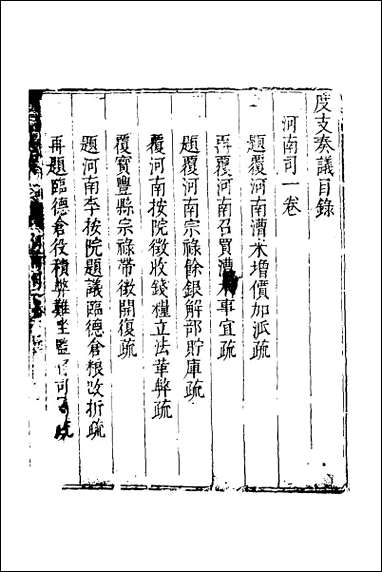 度支奏議目錄
河南司一卷
題覆河南漕米増價加派疏
再覆河南召買漕事宜疏
題覆河南宗祿餘銀解部貯庫疏
覆河南按院徵收錢糧立法革弊疏
覆寶豐縣宗祿帶徵開復疏
題河南李按院題議臨德倉粮改折疏
再題臨德倉役積弊難